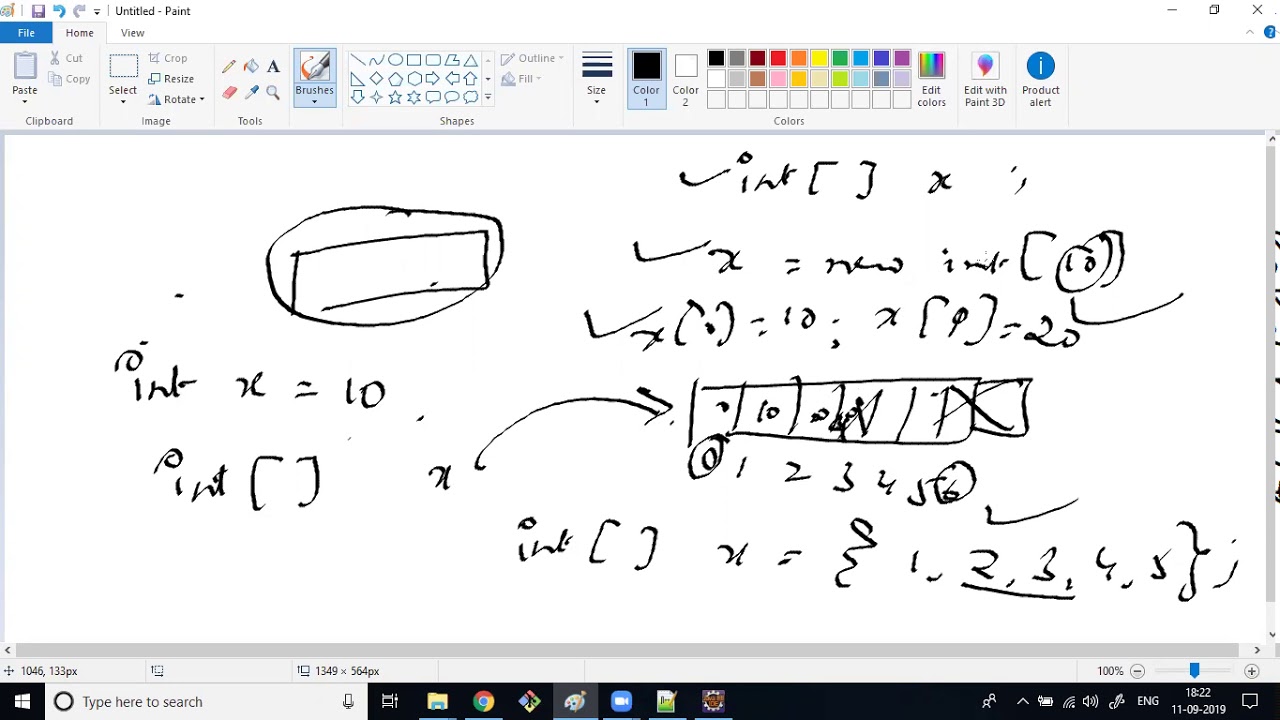 Untitled - Paint
File Home View
Paste
Cut
Copy
Clipboard
Select
Crop
Resize
Rotate
Image
Tools
Brushes
Shapes
Outline
Fill
Size
Color 1
Color 2
Edit colors
Colors
Edit with Paint 3D
Product alert
int[ ] x ;
x = new int[10]
x[0]=10; x[9]=20
int x = 10
10
0 1 2 3 4 5 6
int[ ] x
int[ ] x = { 1, 2, 3, 4, 5};
1046, 133px
1349 × 564px
100%
Type here to search
ENG
18:22
11-09-2019